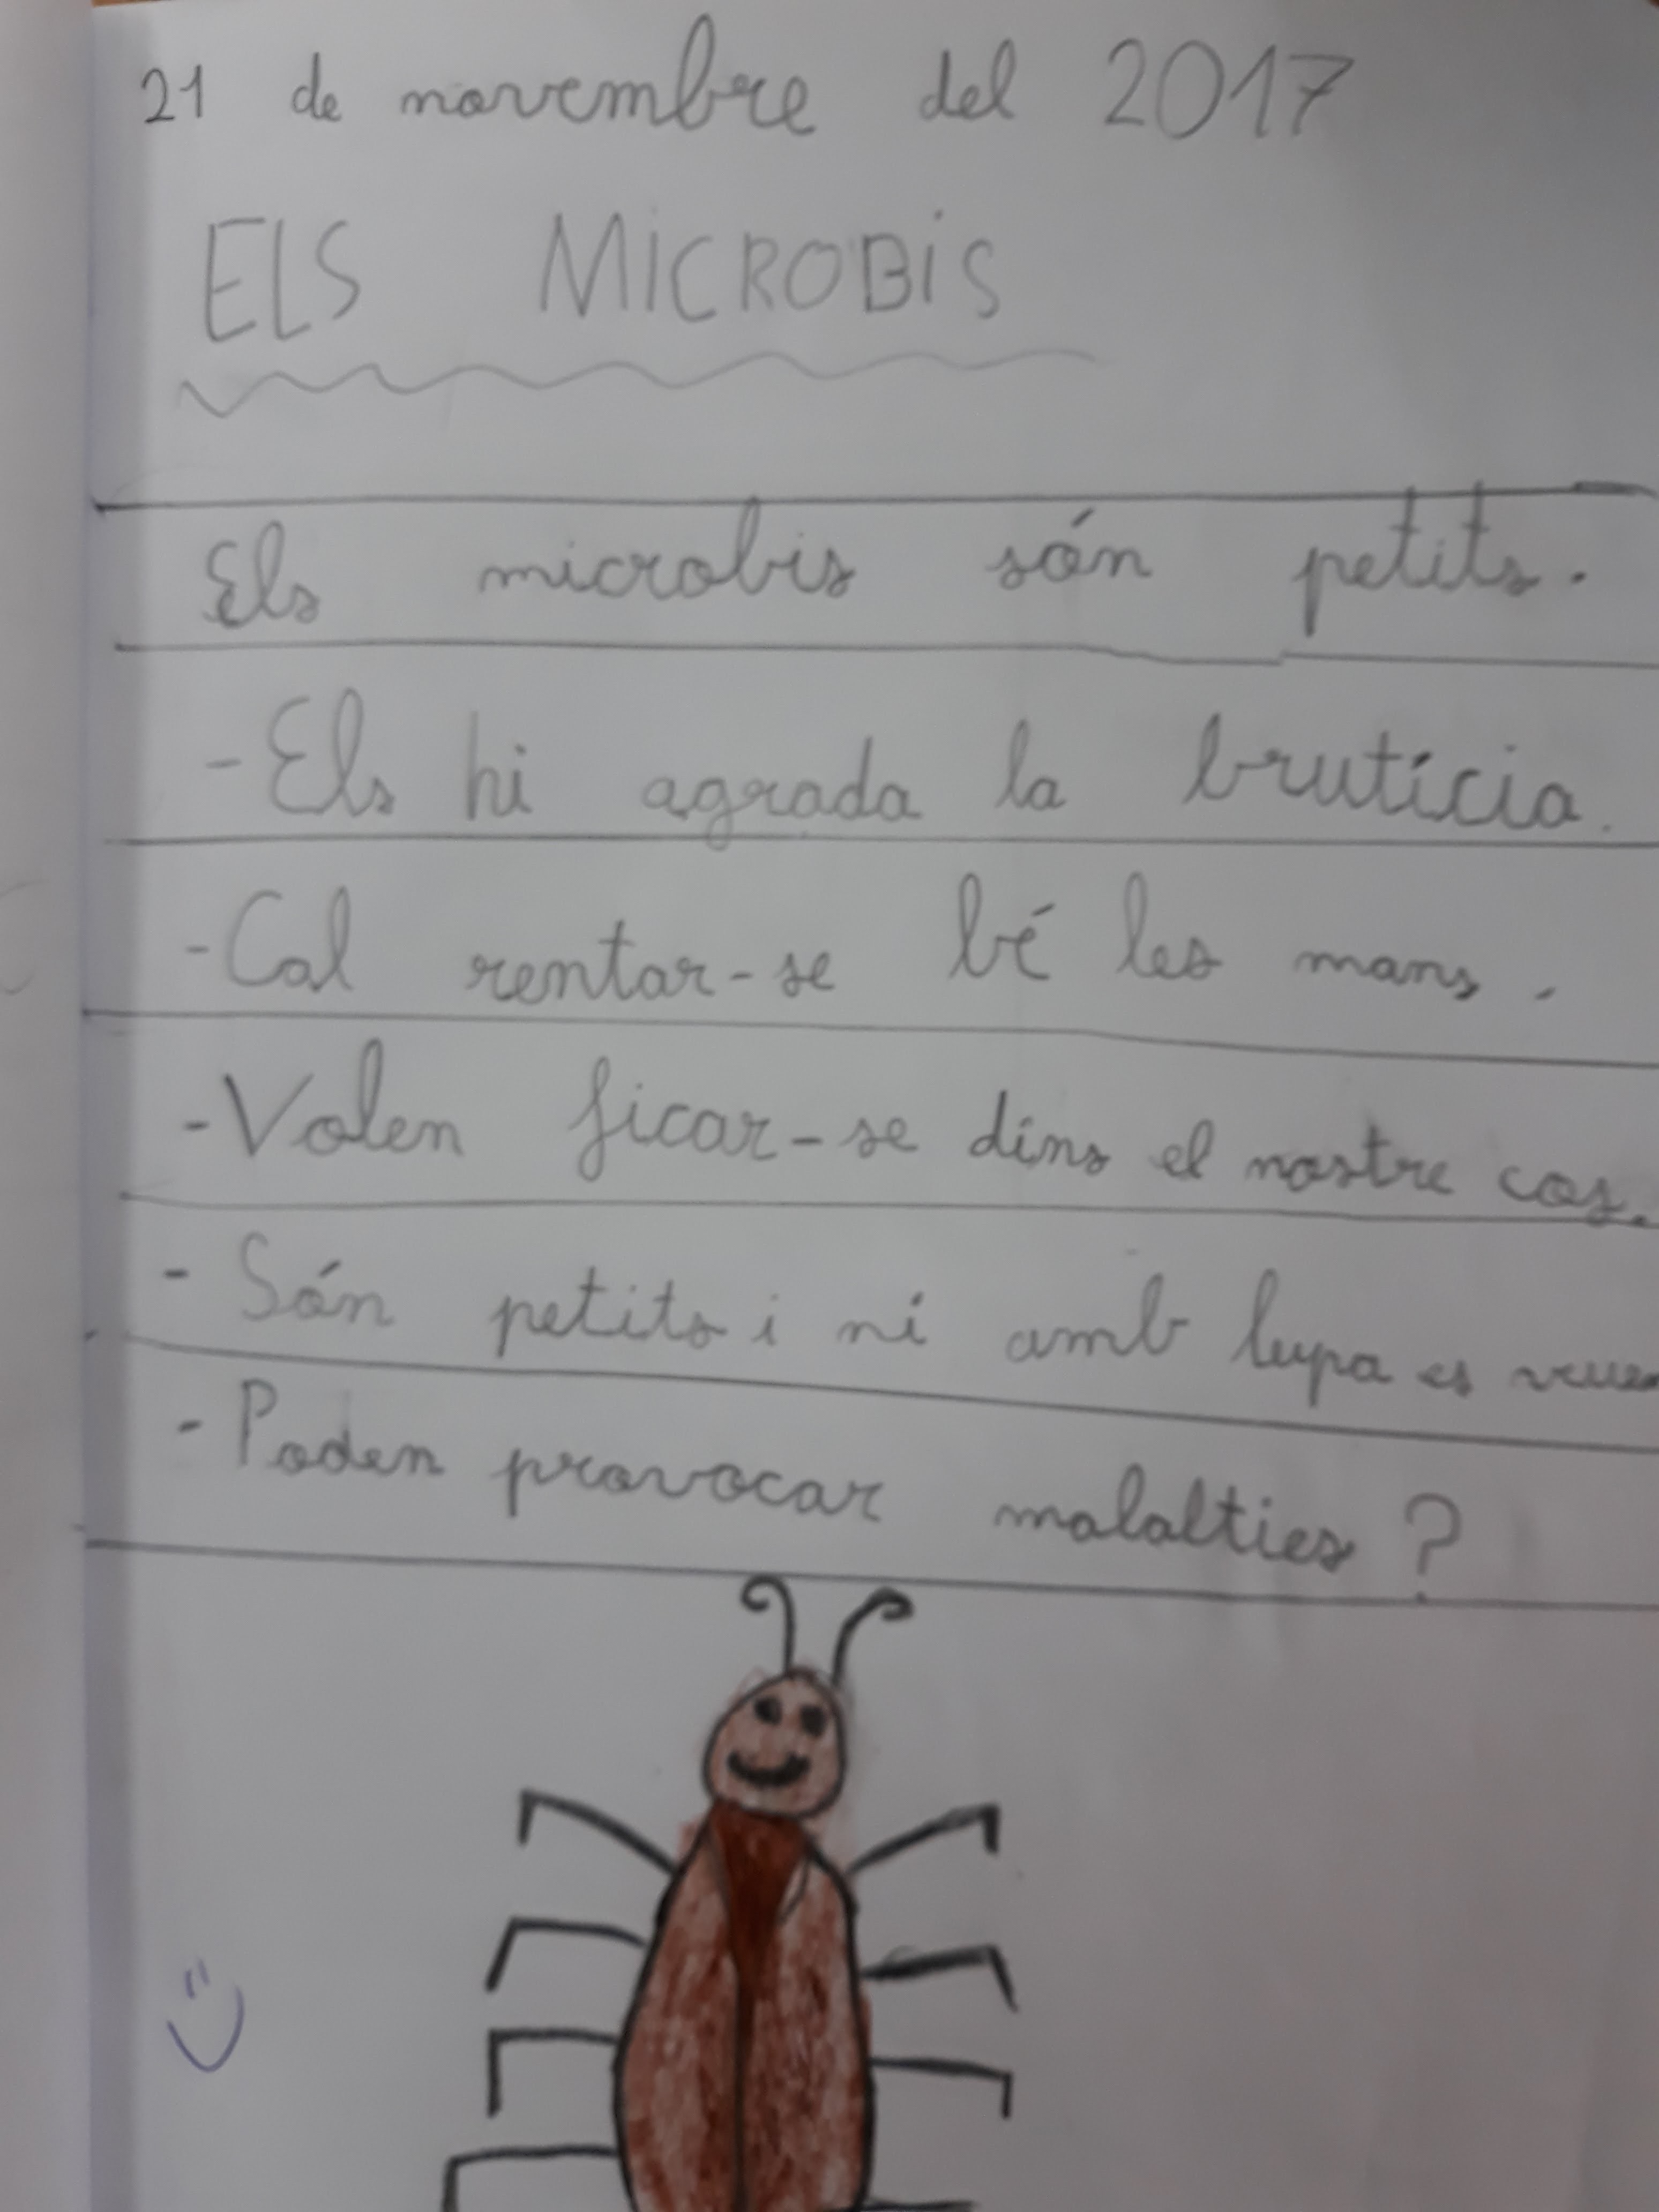 21 de novembre del 2017
ELS MICROBIS
Els microbis són petits.
-Els hi agrada la brutícia.
-Cal rentar-se bé les mans.
-Volen ficar-se dins el nostre cos.
- Són petits i ni amb lupa es veuen
- Poden provocar malalties?